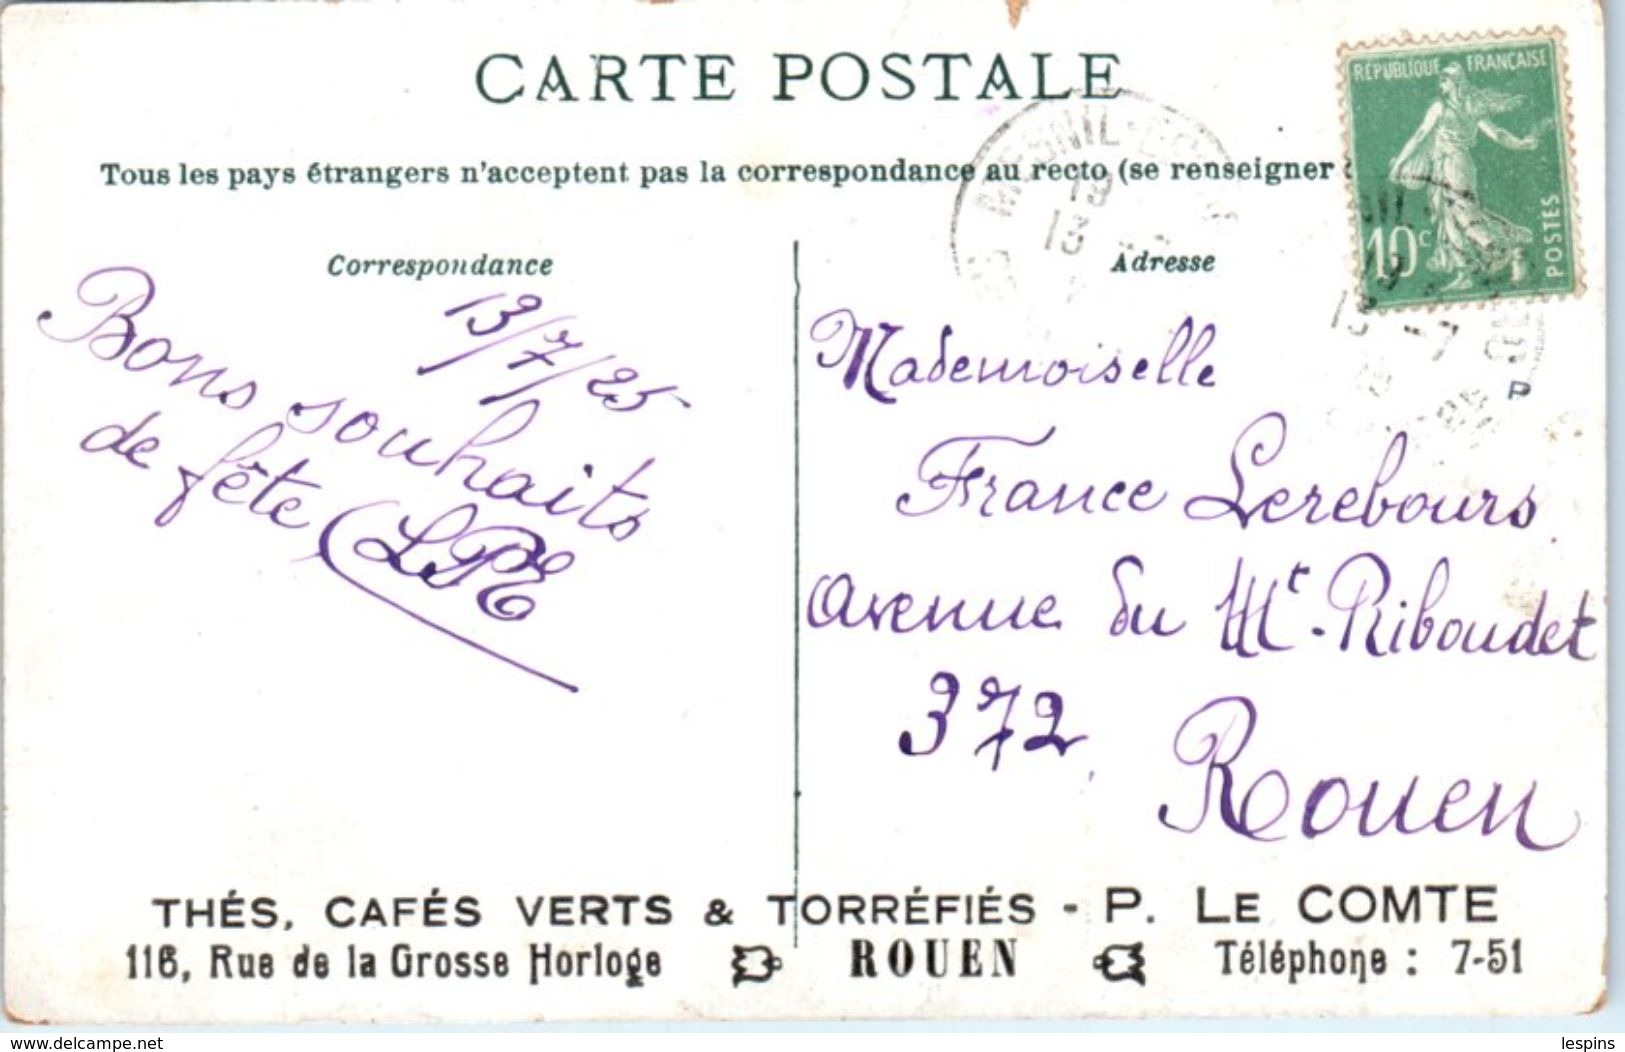 CARTE POSTALE
RÉPUBLIQUE FRANÇAISE
10c
POSTES
Tous les pays étrangers n'acceptent pas la correspondance au recto (se renseigner
MESNIL-
19
13
19
13 -7
P
Correspondance
13/7/25
Bons souhaits
de fête
LPE
Adresse
Mademoiselle
France Lerebours
avenue du Mt-Riboudet
372
Rouen
THÉS, CAFÉS VERTS & TORRÉFIÉS - P. LE COMTE
116, Rue de la Grosse Horloge ROUEN Téléphone : 7-51
www.delcampe.net
lespins